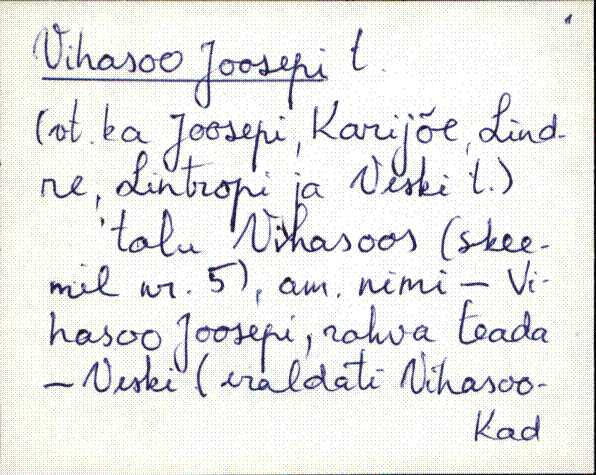 Vihasoo Joosepi t.
(vt. ka Joosepi, Karijõe, Lind-
re, Lintropi ja Veski t.)
talu Vihasoos (skee-
mil nr. 5), am. nimi – Vi-
hasoo Joosepi, rahva teada
– Veski (eraldati Vihasoo-
Kad